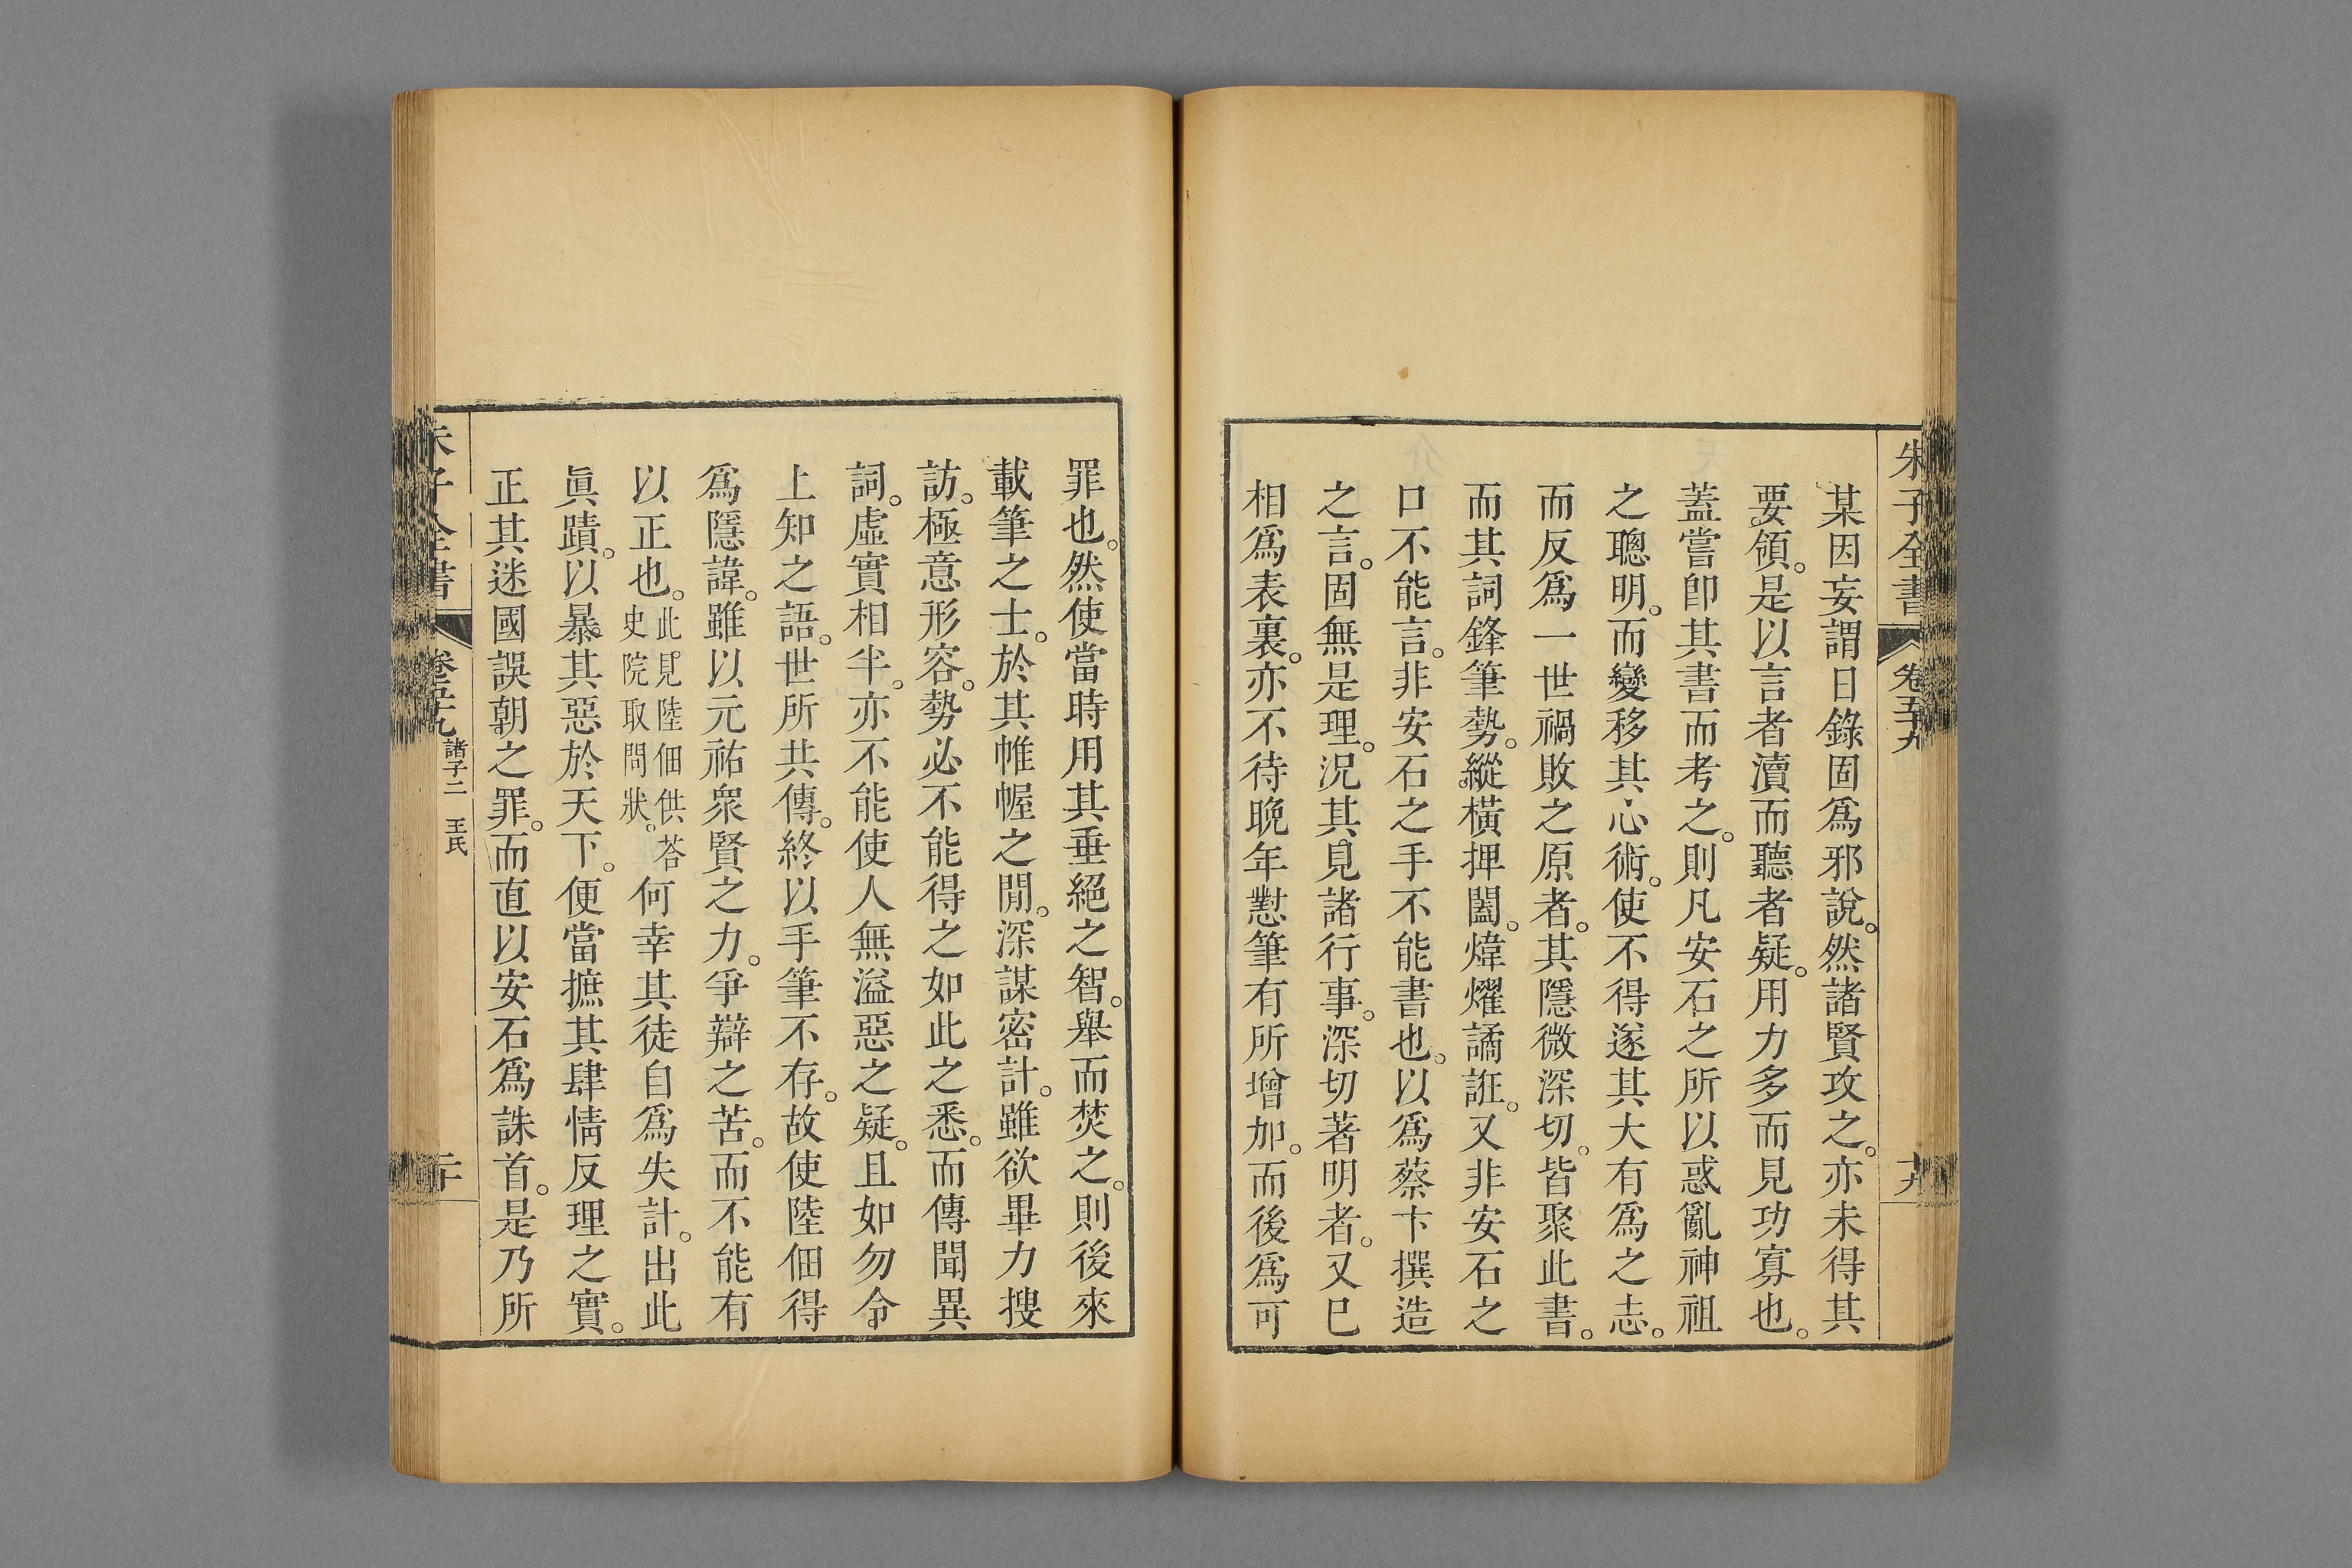 朱子全書 卷五十九 十九
某因妄謂日錄固爲邪說。然諸賢攻之。亦未得其
要領。是以言者瀆而聽者疑。用力多而見功寡也。
蓋嘗卽其書而考之。則凡安石之所以惑亂神祖
之聰明。而變移其心術。使不得遂其大有爲之志。
而反爲一世禍敗之原者。其隱微深切。皆聚此書。
而其詞鋒筆勢。縱橫押闔。煒燿譎誑。又非安石之
口不能言。非安石之手不能書也。以爲蔡卞撰造
之言。固無是理。況其見諸行事。深切著明者。又巳
相爲表裏。亦不待晚年懟筆有所增加。而後爲可
罪也。然使當時用其垂絕之智。舉而焚之。則後來
載筆之士。於其帷幄之閒。深謀密計。雖欲畢力搜
訪。極意形容。勢必不能得之如此之悉。而傳聞異
詞。虛實相半。亦不能使人無溢惡之疑。且如勿令
上知之語。世所共傳。終以手筆不存。故使陸佃得
爲隱諱。雖以元祐衆賢之力。爭辯之苦。而不能有
以正也。此見陸佃供荅史院取問狀。何幸其徒自爲失計。出此
眞蹟。以暴其惡於天下。便當摭其肆情反理之實。
正其迷國誤朝之罪。而直以安石爲誅首。是乃所
朱子全書 卷五十九 諸子二 王氏 二十